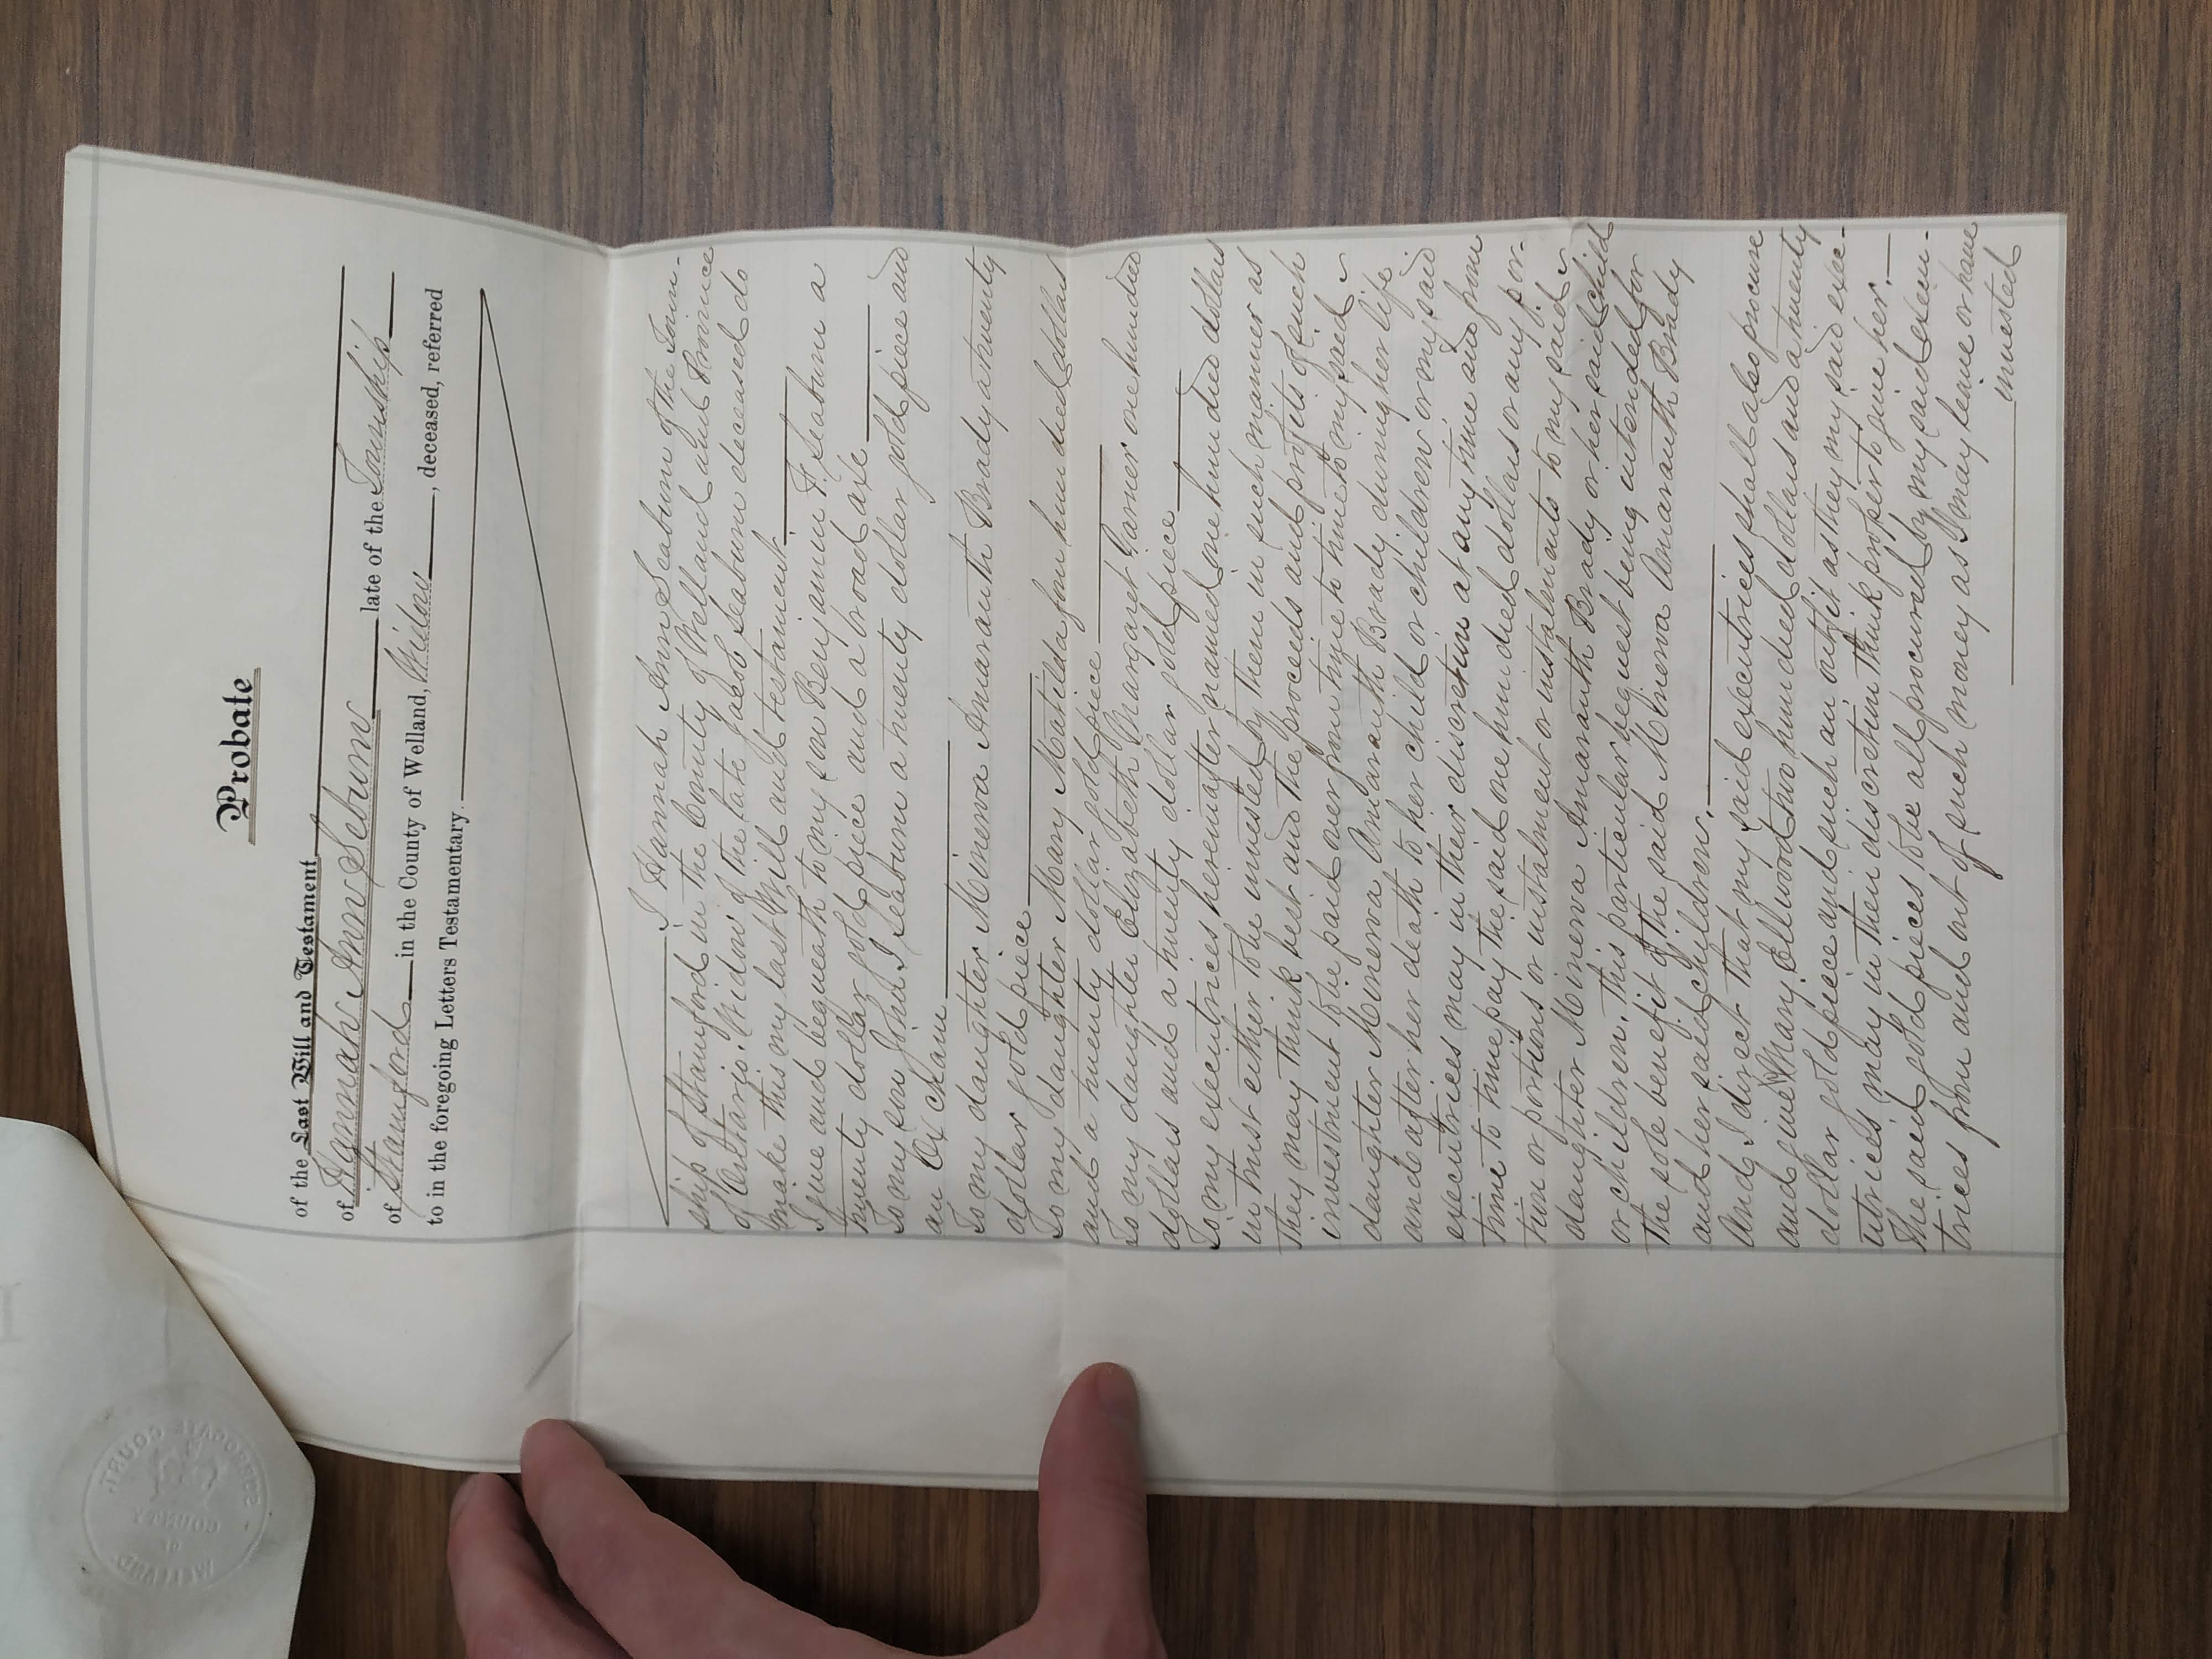 Probate
of the Last Will and Testament
of Hannah Ann Seburn late of the Township
of Stamford in the County of Welland, Widow, deceased, referred
to in the foregoing Letters Testamentary.
I Hannah Ann Seaburn of the Town-
ship of Stamford in the County of Welland and Province
of Ontario, Widow of the late Jacob Seaburn deceased do
make this my last Will and testament.
I give and bequeath to my son Benjamin F. Seaburn a
twenty dollar gold piece and a broad axe
To my son John I Seaburn a twenty dollar gold piece and
an Ox chain
To my daughter Minerva Amaranth Brady a twenty
dollar gold piece
To my daughter Mary Matilda four hundred dollars
and a twenty dollar gold piece
To my daughter Elizabeth Margaret Garner one hundred
dollars and a twenty dollar gold piece
To my executrices hereinafter named one hundred dollars
in trust either to be invested by them in such manner as
they may think best and the proceeds and profits of such
investment to be paid over from time to time to my said
daughter Minerva Amaranth Brady during her life
and after her death to her child or children or my said
executrices may in their discretion at any time and from
time to time pay the said one hundred dollars or any por-
tion or portions or instalment or instalments to my said
daughter Minerva Amaranth Brady or her said child
or children, this particular bequest being intended for
the sole benefit of the said Minerva Amaranth Brady
and her said children.
And I direct that my said executrices shall also procure
and give Mary Ellwood two hundred dollars and a twenty
dollar gold piece and such an outfit as they my said exec-
utrices may in their discretion think proper to give her.
The said gold pieces to be all procured by my said execu-
trices from and out of such money as I may leave or have
invested
SURROGATE COURT,
COUNTY
OF
WELLAND